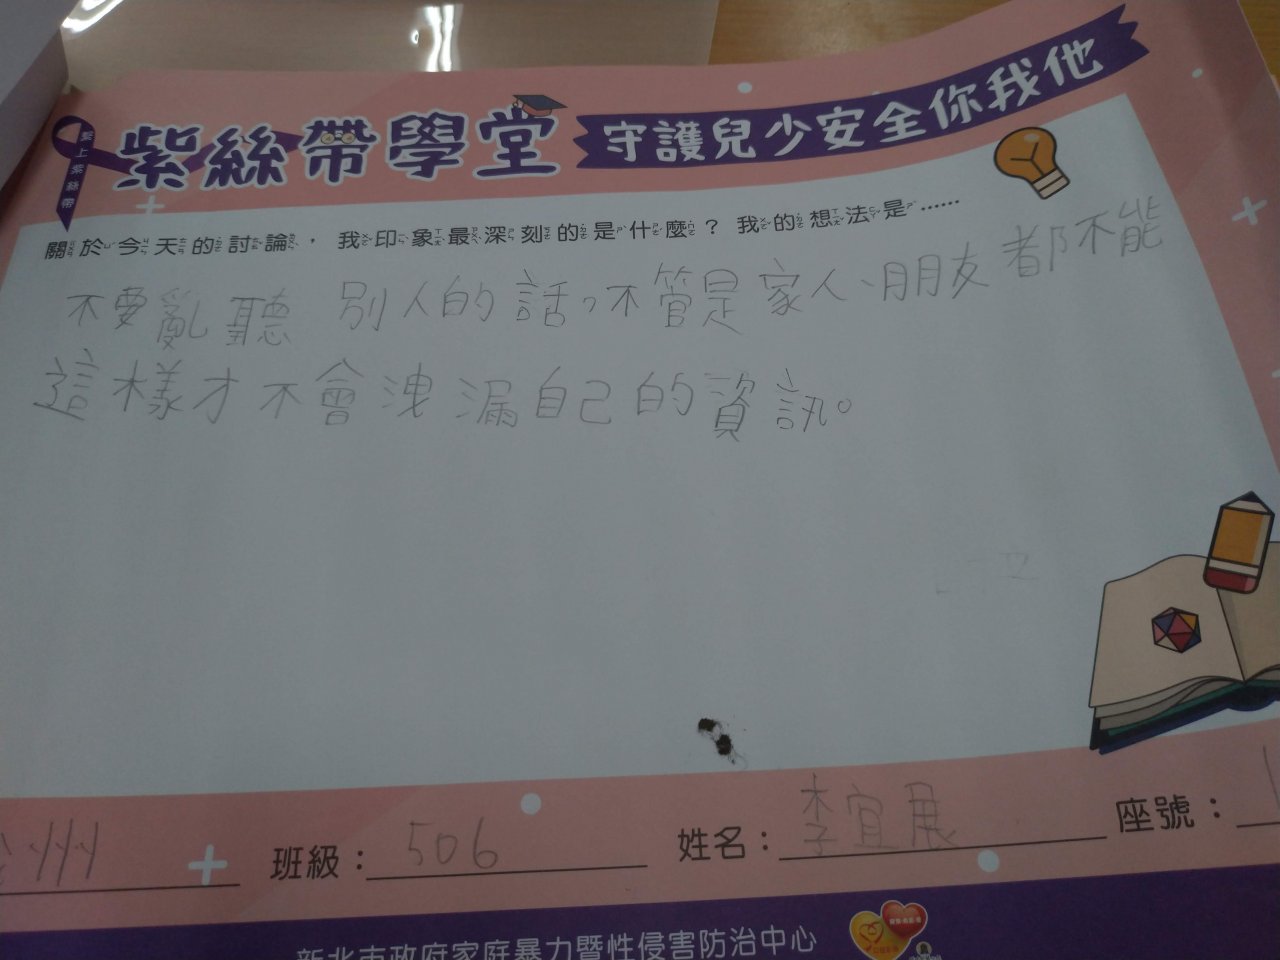 繫上紫絲帶
紫絲帶學堂
守護兒少安全你我他
關於今天的討論，我印象最深刻的是什麼？我的想法是……
不要亂聽別人的話，不管是家人、朋友都不能
這樣才不會洩漏自己的資訊。
州
班級：506
姓名：李宜展
座號：1
新北市政府家庭暴力暨性侵害防治中心